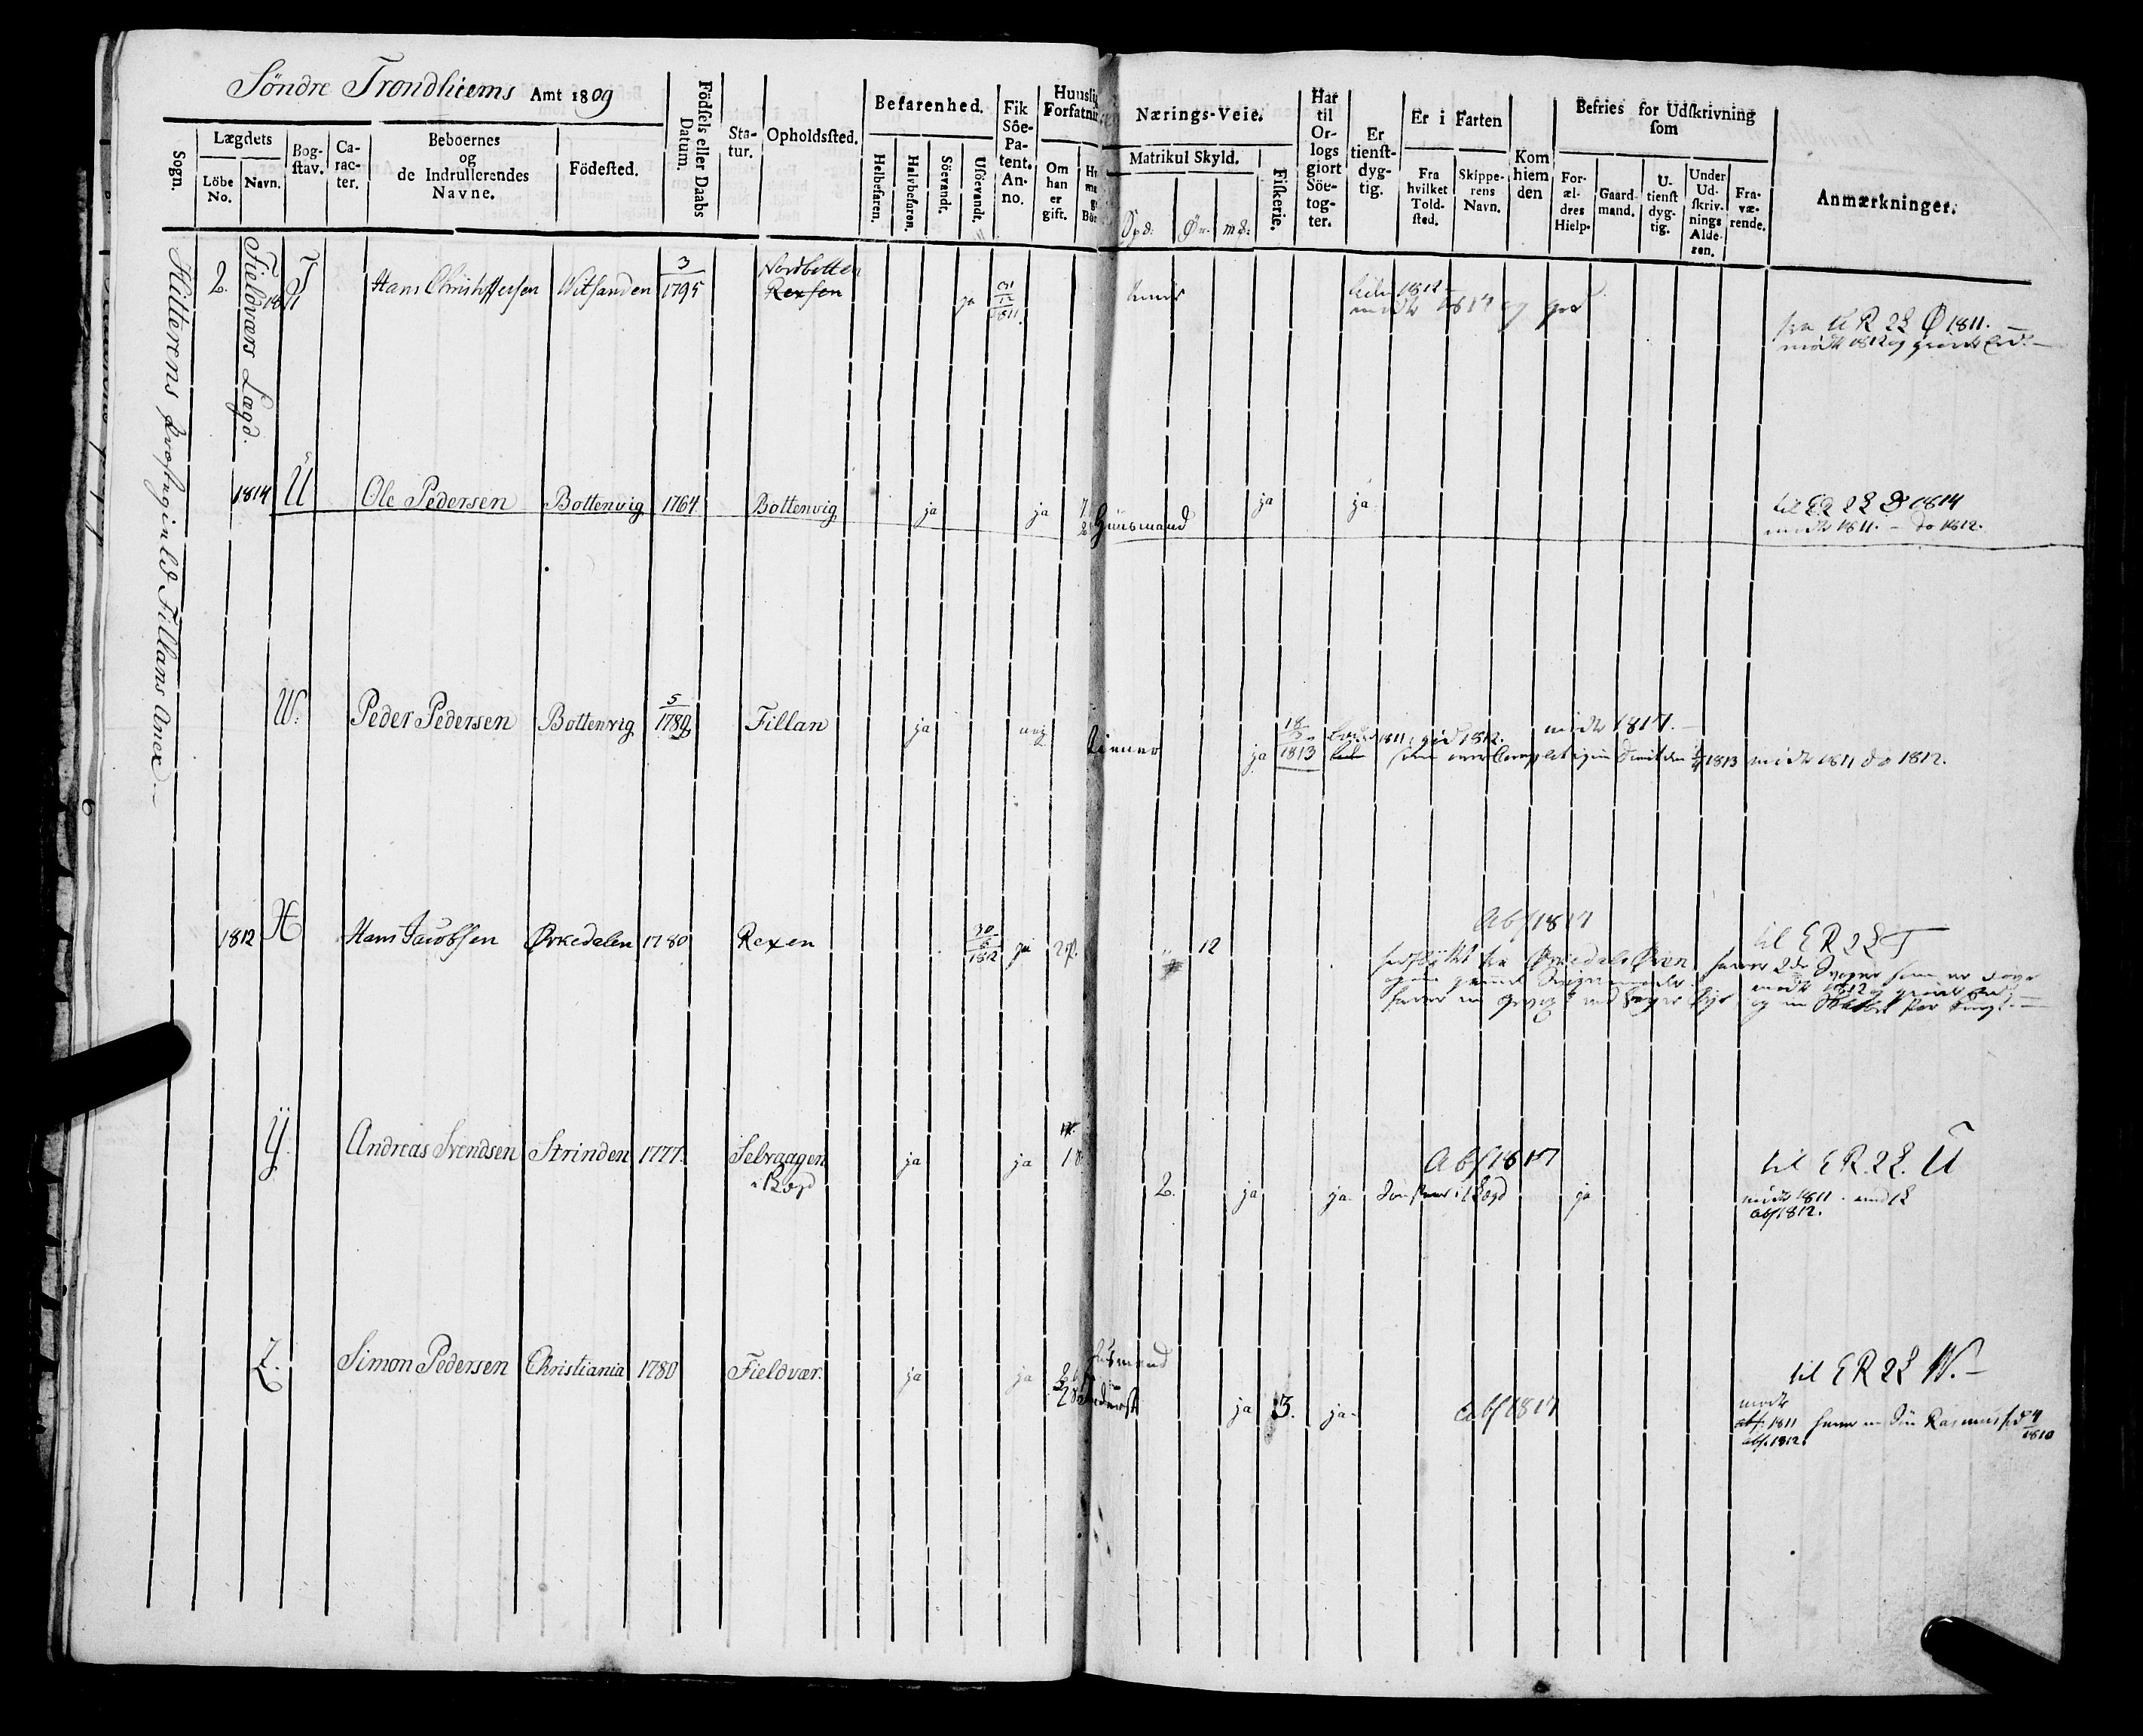 Söndre Trondhiems Amt 1809
Sogn.
Lægdets
Löbe No.
Navn.
Bog-stav.
Ca-rac-ter.
Beboernes og de Indrullerendes Navne.
Födested.
Födsels eller Daabs Datum.
Sta-tur.
Opholdssted.
Befarenhed.
Helbefaren.
Halvbefaren.
Söevandt.
Usöevandt.
Fik Söe-Pa-tent. An-no.
Huuslig Forfatning
Om han er gift.
Nærings-Veie.
Matrikul Skyld.
Spd: Ør. mk:
Fiskerie.
Har til Or-logs giort Söe-tog-ter.
Er tienst-dyg-tig.
Er i Farten
Fra hvilket Told-sted.
Skippe-rens Navn.
Kom hiem den
Befries for Udskrivning som
For-æl-dres Hielp.
Gaard-mand.
U-tienst dyg-tig.
Under Ud-skriv-nings Alde-ren.
Fra-væ-rende.
Anmærkninger.
Hitterens Præstegield Fillans Anex.
2. Fieldværs Lægd.
1811 T Hans Christoffersen Witsanden 3/1795 Nordbotten
Rexsen ja 31/12 1811.
fra ER 2L Ø 1811.
mödt 1812 og giordt Eed.
1814 U Ole Pedersen Bottenvig 1764 Bottenvig ja ja Huusmand ja ja
til ER 2L D 1814
mödt 1811. - do 1812.
W. Peder Pedersen Bottenvig 5/1789 Fillan ja nej tiener ja 18/5 1813 mödt 1817.
1813 mödt 1811 do 1812.
1812 H Hans Jacobsen Ørkedalen 1780 Rexen 30/6 1812 ja 12
Abs 1817
til ER 2L T
mödt 1812 og giordt Eed
Y. Andreas Svendsen Strinden 1777. Selvaagen
i Lægd ja ja 2. ja ja ja
Abs 1817
til ER 2L. U
mödt 1811.
abs 1812.
Z. Simon Pedersen Christiania 1780 Fieldvær. ja ja Husmand
ja 3. ja Abs 1817
til ER 2L W.
mödt
abs. 1811 haver en Sön Rasmus
abs. 1812. 1810